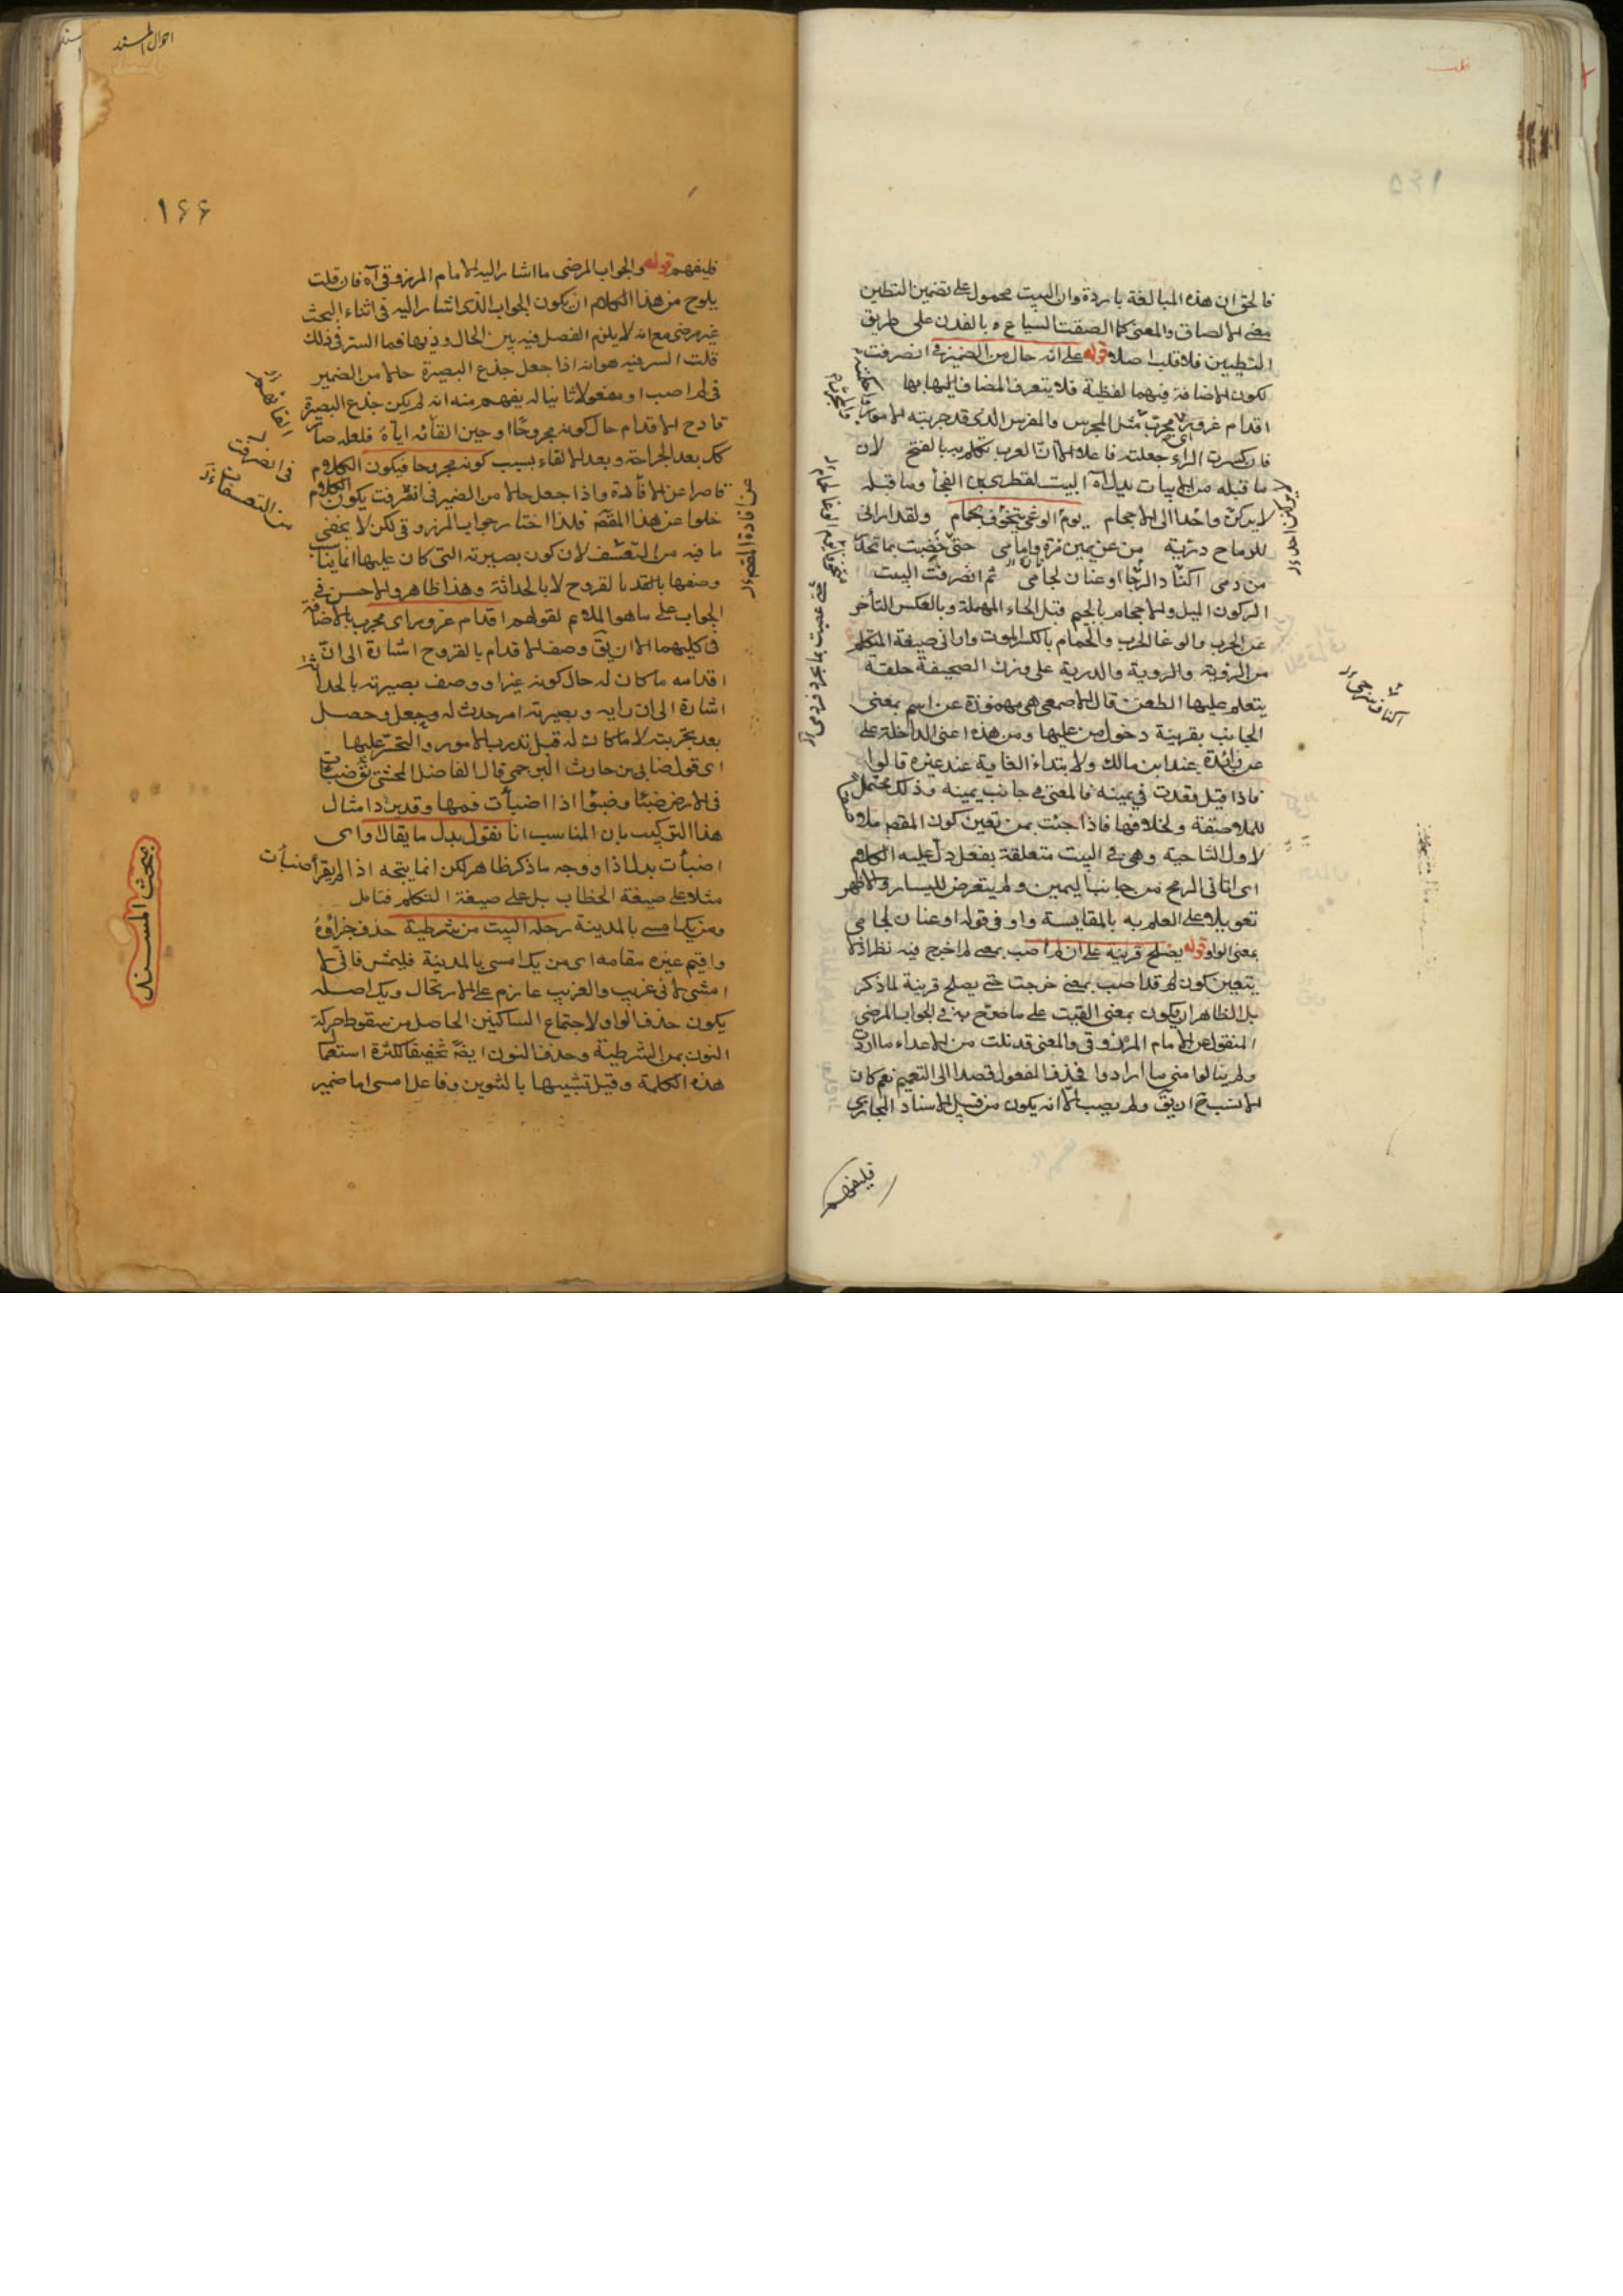 فالحق ان هذه المبالغة باردة وان البيت محمول على تضمين التطيين
معنى الالصاق والمعنى كما الصقت السياع بالفدن على طريق
التطيين فلا قلب اصلا قوله على انه حال من الضمير في انصرفت
لكون الاضافة فيهما لفظية فلا يتعرف المضاف اليها بها
اقدام غر وراى مجرب مثل المجرس والمضرس الذى قد جربته الامور
فان كسرت الراء جعلته فاعلا الا ان العرب تكلم به بالفتح لان
ما قبله من الابيات بدل آه البيت لقطرى بن الفجأ وما قبله
لا يركنن واحدا الى الاحجام يوم الوغى متخوف لحمام ولقد ارانى
للرماح درئية من عن يمين مرة وامامى حتى خضبت بما تحدر
من دمى اكناف سرجى او عنان لجامى ثم انصرفت البيت
الركون الميل والاحجام بالجيم قبل الحاء المهملة وبالعكس التأخر
عن الحرب والوغا الحرب والحمام بالكسر الموت وارانى صيغة المتكلم
من الرؤية والروية والدرية على وزن الصحيفة حلقة
يتعلم عليها الطعن قال الاصمعى هى مهموزة عن اسم بمعنى
الجانب بقرينة دخول من عليها ومن هذه اعنى الداخلة على
عن زائدة عند ابن مالك ولابتداء الغاية عند غيره قالوا
فاذا قيل قعدت في يمينه فالمعنى في جانب يمينه وذلك محتمل
للملاصقة ولخلافها فاذا جئت بمن تعين كون المقص ملاصقا
لاول الناحية وهى في البيت متعلقة بفعل دل عليه الكلام
اى اتانى الرمح من جانب اليمين ولم يتعرض لليسار والاظهر
تعويلا على العلم به بالمقايسة واو في قوله او عنان لجامى
بمعنى الواو قوله يصلح قرينة على ان لم اصب بمعنى لم اجرح فيه نظر اذ لا
يتعين كون لم قد اصب بمعنى خرجت حتى يصلح قرينة لما ذكر
بل الظاهر ان يكون بمعنى القيت على ما صرح به في الجواب المرضى
المنقول عن الامام المرزوقى والمعنى قد نلت من الاعداء ما اردت
ولم ينالوا منى ما ارادوا فحذف المفعول قصدا الى التعميم نعم كان
الانسب ح ان يق ولم يصب الا انه يكون من قبيل الاسناد المجازى
فليفهم
اكناف سرجى
احوال المسند
١٦٦
فليفهم قوله والجواب المرضى ما اشار اليه الامام المرزوقى آه فان قلت
يلوح من هذا الكلام ان يكون الجواب الذى اشار اليه فى اثناء البحث
غير مرضى مع انه لا يلزم الفصل فيه بين الحال وذيها فما السر فى ذلك
قلت السر فيه هو انه اذا جعل جذع البصيرة حالا من الضمير
فى لم اصب او مفعولا ثانيا له يفهم منه انه لم يكن جذع البصيرة
قارح الاقدام حال كونه مجروحا او حين القائه اياه فلعله صار
كك بعد الجراحة وبعد الالقاء بسبب كونه مجروحا فيكون الكلام
قاصرا عن الافادة واذا جعل حالا من الضمير فى انصرفت يكون الكلام
خلوا عن هذا المقص فلذا اختار جواب المرزوقى لكن لا يخفى
ما فيه من التعسف لان كون بصيرته التى كان عليها انما يناسب
وصفها بالقروح لا بالحداثة وهذا ظاهر والاحسن فى
الجواب على ما هو الملايم لقولهم اقدام غر وراى مجرب بالاضافة
فى كليهما الا ان يق وصف الاقدام بالقروح اشارة الى ان
اقدامه ما كان له حال كونه غرا ووصف بصيرته بالحداثة
اشارة الى ان رايه وبصيرته امر حدث له وجعل وحصل
بعد تجربته لا ما كان له قبل تدرب الامور والتحير عليها
اى قول ضابى بن حارث البرجمى قال الفاضل المحشى تق ضبأت
فى الارض ضبئا وضبؤا اذا اضبأت فيها وقد يزد امثال
هذا التركيب بان المناسب انا نقول بدل ما يقال او اى
اضبأت بدل اذا ووجه ما ذكر ظاهر لكن انما يتجه اذا لم يقرأ ضبأت
مثلا على صيغة الخطاب بل على صيغة التكلم فتامل
ومن يك امسى بالمدينة رحله البيت من شرطية حذف جزاؤه
واقيم غيره مقامه اى من يك امسى بالمدينة فليمش فانى لا
امشى لانى غريب والغريب عازم على الارتحال ويك اصله
يكون حذف الواو لاجتماع الساكنين الحاصل من سقوط حركة
النون بمن الشرطية وحذف النون ايضا تخفيفا لكثرة استعما
هذه الكلمة وقيل تشبيها بالتنوين وفاعل امسى اما ضمير
مبحث المسند